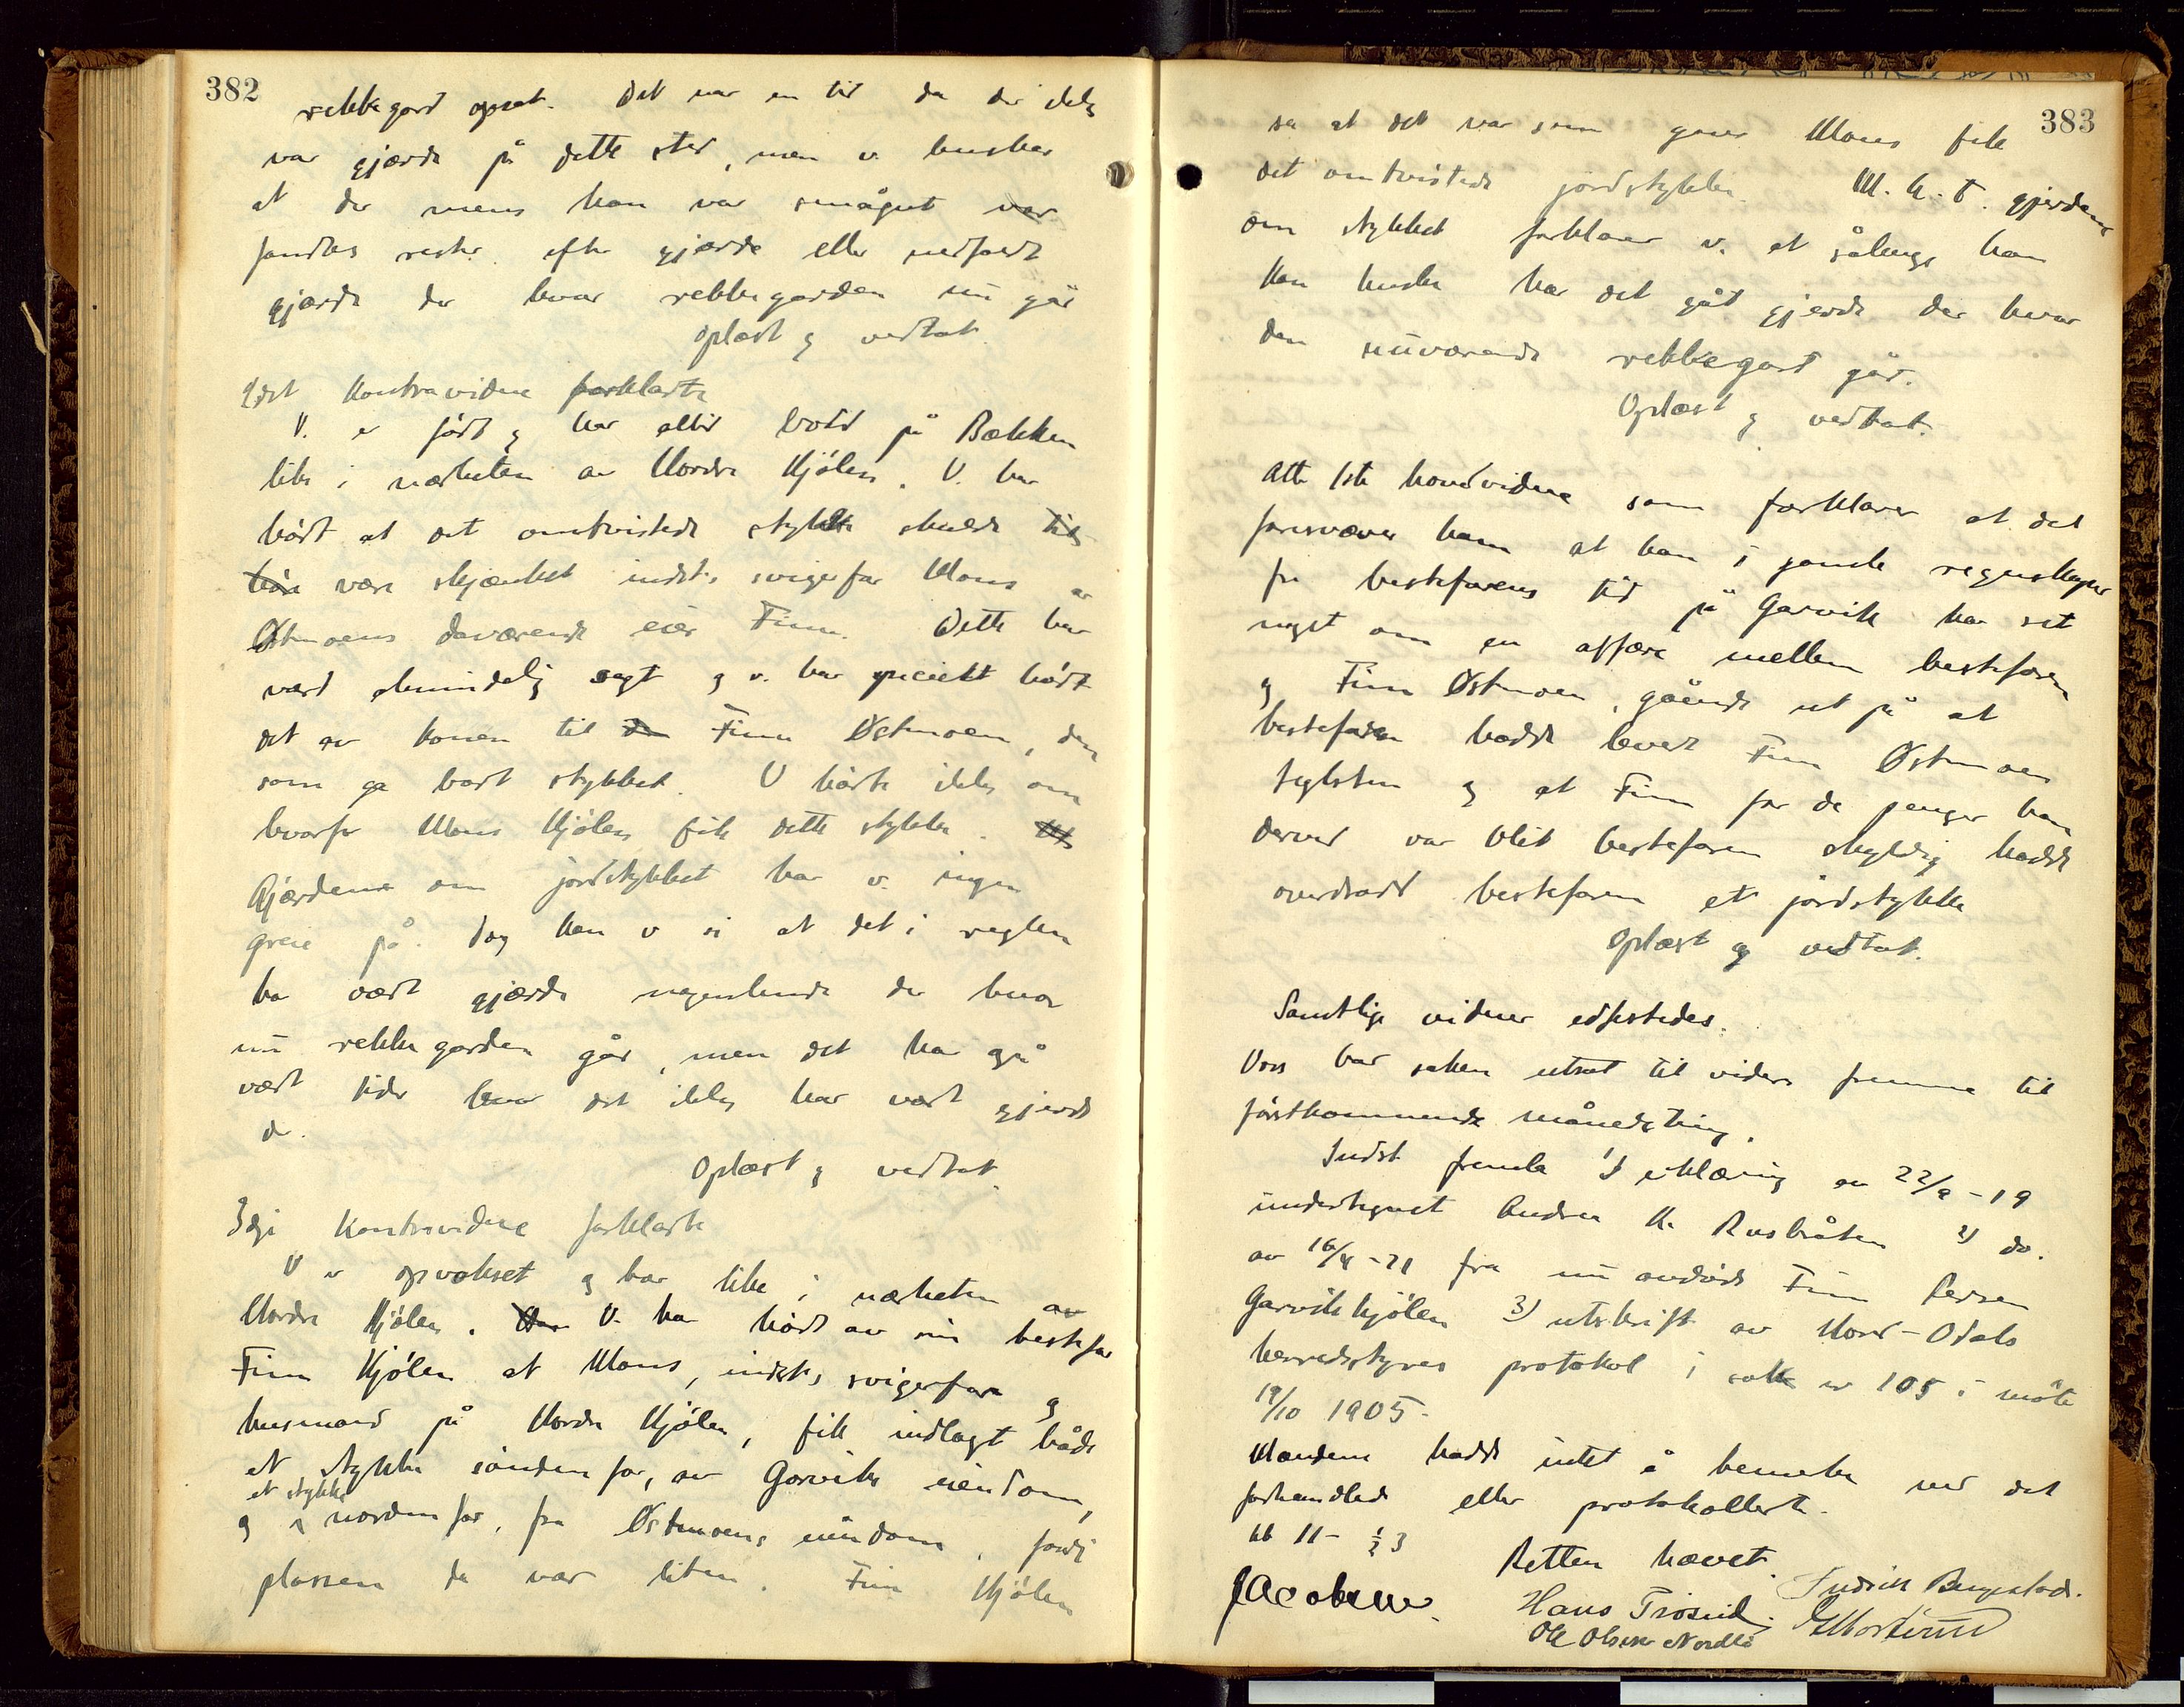 382
rekkegard opsat. Det var en tid da der ikke
var gjærde på dette sted, men v. husker
at der mens han var smågut var
fandtes rester efter gjærde eller nedfaldt
gjærde der hvor rekkegarden nu går
Oplæst og vedtat.
2det kontravidne forklarte
V. er født og har altid bodd på Bækken
like i nærheten av Nordre Kjølen. V. har
hørt at det omtvistede stykke skulde
være skjænket indst.s svigerfar Mons av
Østmoens daværende eier Finn. Dette har
vært almindelig sagt og v. har specielt hørt
det av konen til Finn Østmoen, den
som ga bort stykket. V hørte ikke om
hvorfor Mons Kjølen fik dette stykke.
Gjærdene om jordstykket har v. ingen
greie på. Dog kan v si at det i reglen
har vært gjærde nogenlunde der hvor
nu rekkegarden går, men det har også
vært tider hvor det ikke har vært gjerde
der.
Oplæst og vedtat.
3dje kontravidne forklarte
V er opvokset og bor like i nærheten av
Nordre Kjølen. V. har hørt av sin bestefar
Finn Kjølen at Mons, indst.s svigerfar og
husmand på Nordre Kjølen, fik indlagt både
et stykke søndenfor, av Garviks eiendom,
og et stykke nordenfor, fra Østmoens eiendom, fordi
plassen da var liten. Finn Kjølen
383
sa at det var som gave Mons fik
det omtvistede jordstykke. M.h.t. gjerdene
om stykket forklarer v. at sålenge han
kan huske har det gåt gjerde der hvor
den nuværende rekkegard går.
Oplæst og vedtat.
Atter 1ste hovedvidne som forklarer at det
foresvæver ham at han i gamle regnskaper
fra bestefarens tid på Garvik har set
noget om en affære mellem bestefaren
og Finn Østmoen, gående ut på at
bestefaren hadde levert Finn Østmoen
teglsten og at Finn for de penger han
derved var blit bestefaren skyldig hadde
overdradd bestefaren et jordstykke
Oplæst og vedtat.
Samtlige vidner edfestedes.
Voss bar saken utsat til videre fremme til
førstkommende månedsting.
Indst fremla 1) erklæring av 22/9-19
undertegnet Andrea K. Rusbråten 2) do.
av 16/4-21 fra nu avdøde Finn Persen
Garvikkjølen 3) utskrift av Nord-Odals
herredsstyres protokol i sak nr 105 i møte
19/10 1905.
Mændene hadde intet å bemerke ved det
forhandlede eller protokollerte.
kl 11- ½3
Retten hævet.
Jacobsen.
Hans Trøsnid.
Ole Olsen Nordli